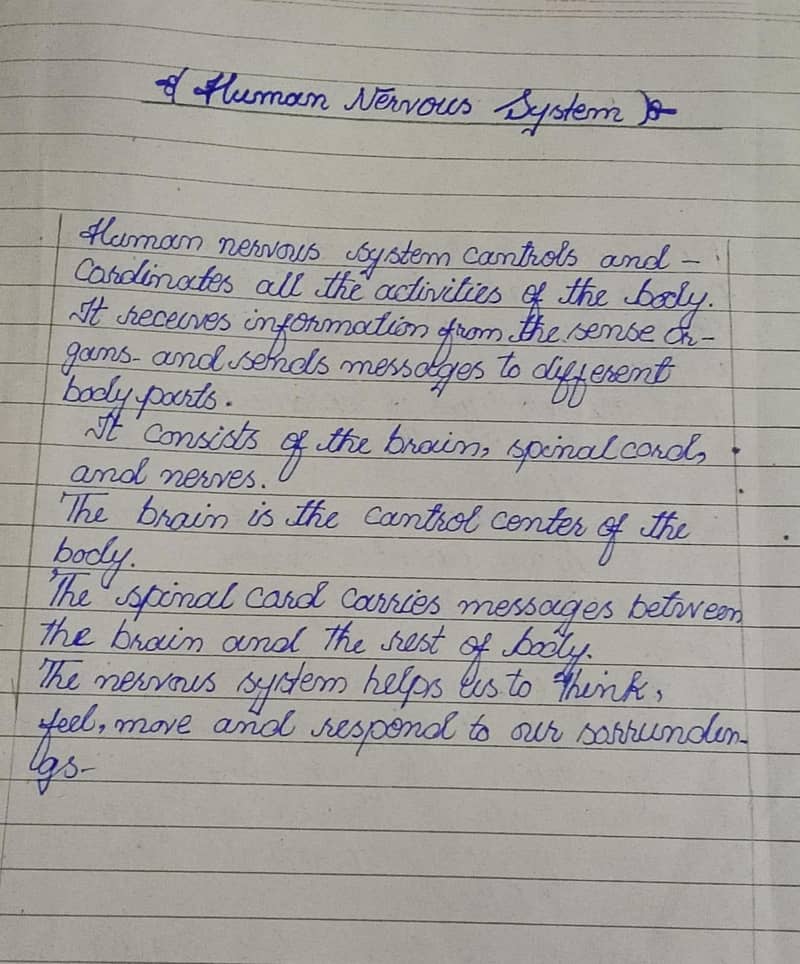 { Human Nervous System }
Human nervous system controls and -
Cordinates all the activities of the body.
It receives information from the sense or-
gans- and sends messages to different
body parts.
It consists of the brain, spinal cord,
and nerves.
The brain is the control center of the
body.
The spinal cord carries messages between
the brain and the rest of body.
The nervous system helps us to think,
feel, move and respond to our sorrundin-
gs-